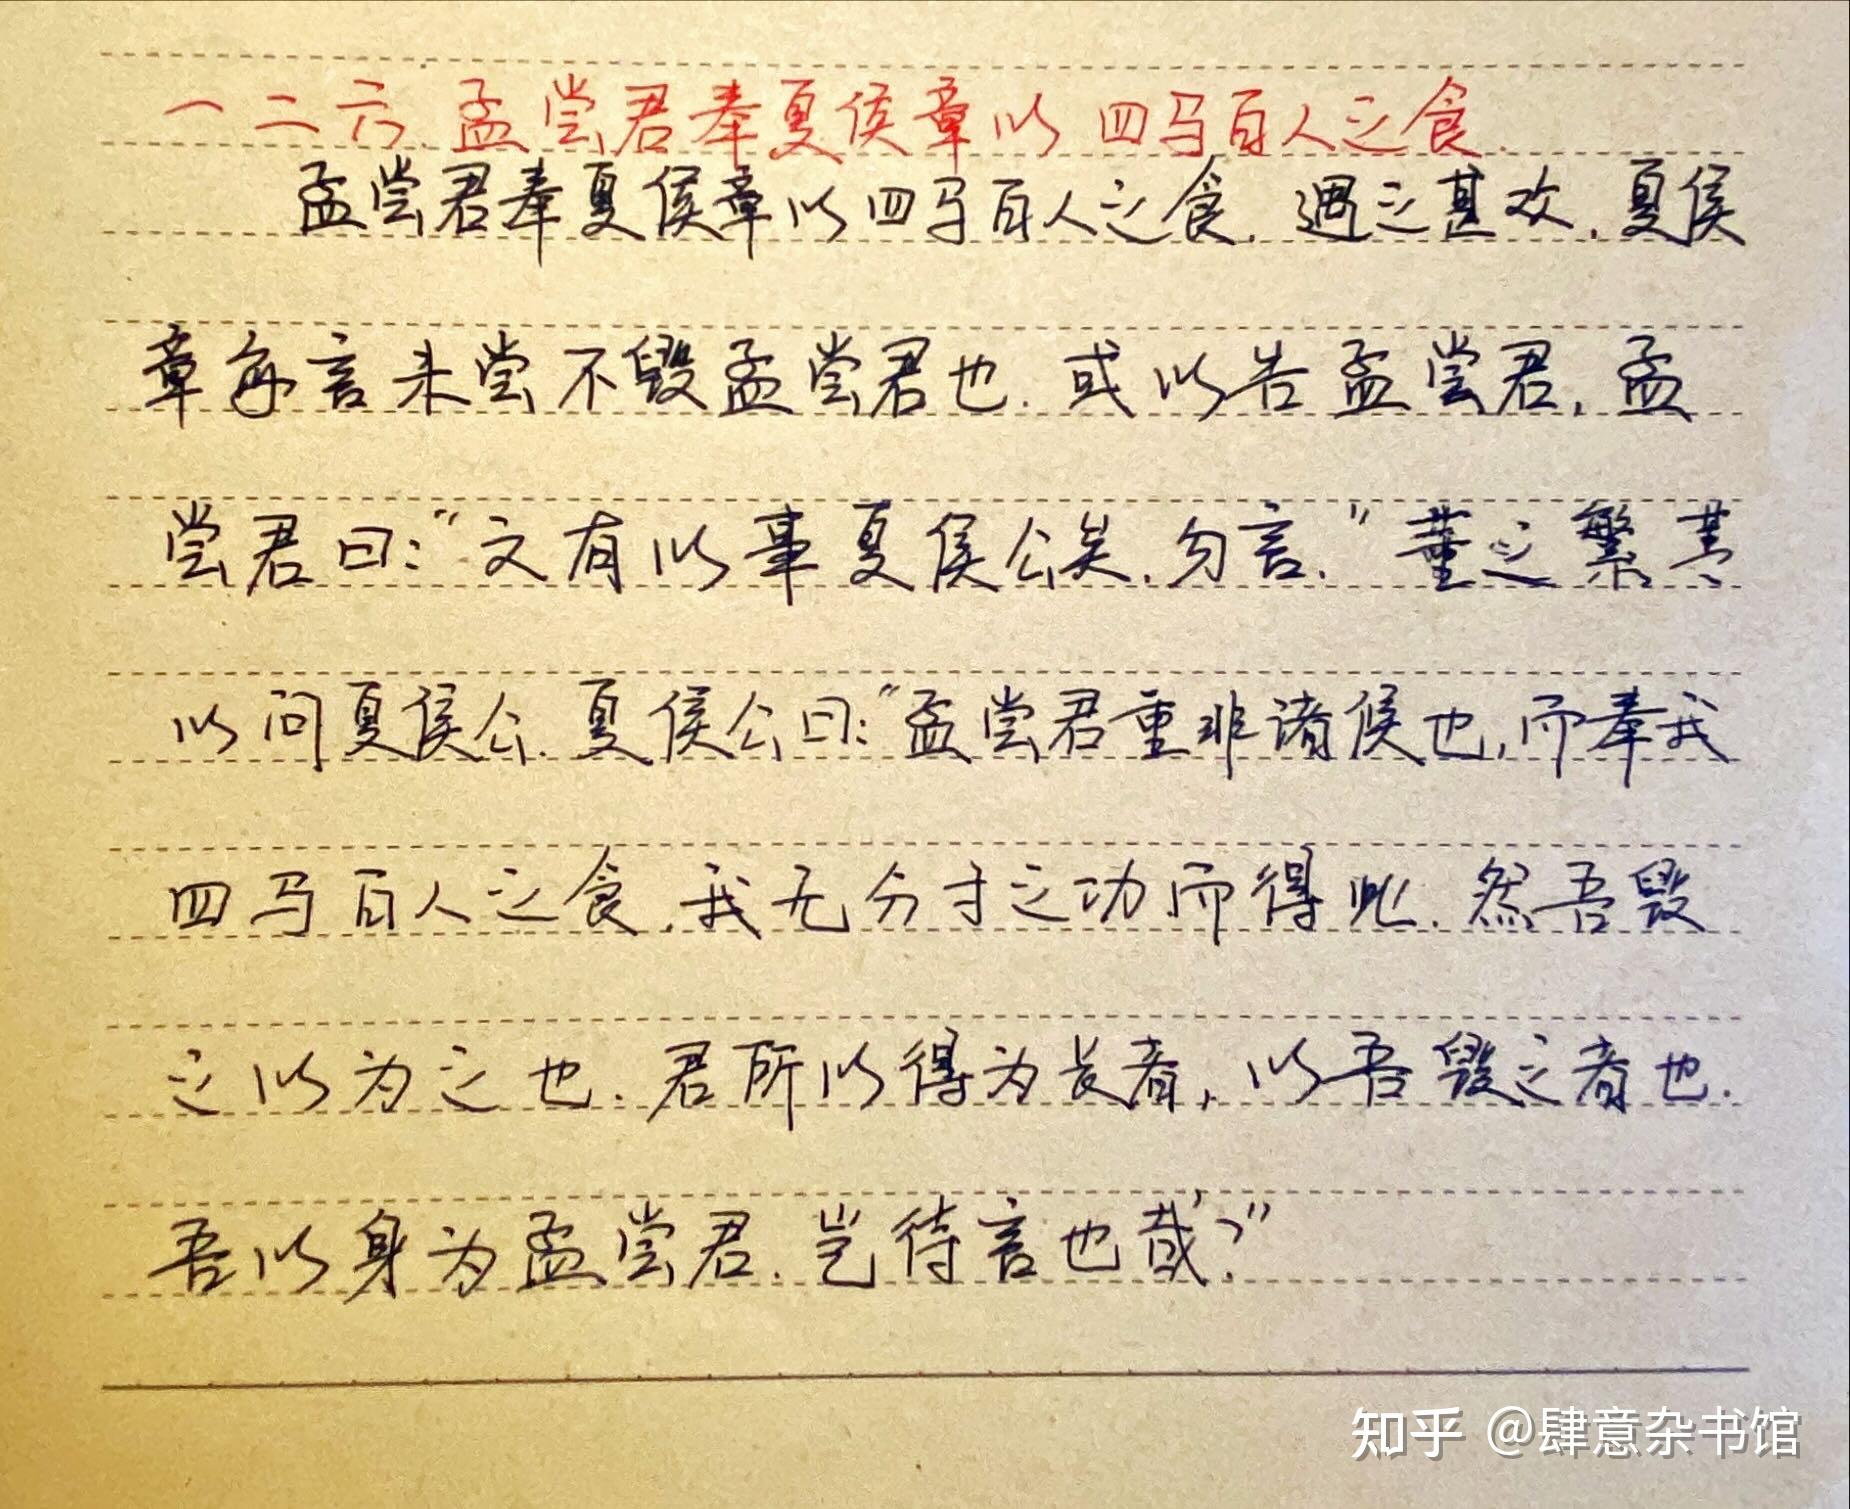 一二六、孟尝君奉夏侯章以四马百人之食.
孟尝君奉夏侯章以四马百人之食.遇之甚欢.夏侯
章每言未尝不毁孟尝君也.或以告孟尝君,孟
尝君曰:“文有以事夏侯公矣,勿言.”董之繁菁
以问夏侯公.夏侯公曰:“孟尝君重非诸侯也,而奉我
四马百人之食.我无分寸之功而得此.然吾毁
之以为之也.君所以得为长者,以吾毁之者也.
吾以身为孟尝君.岂待言也哉?”
知乎 @肆意杂书馆